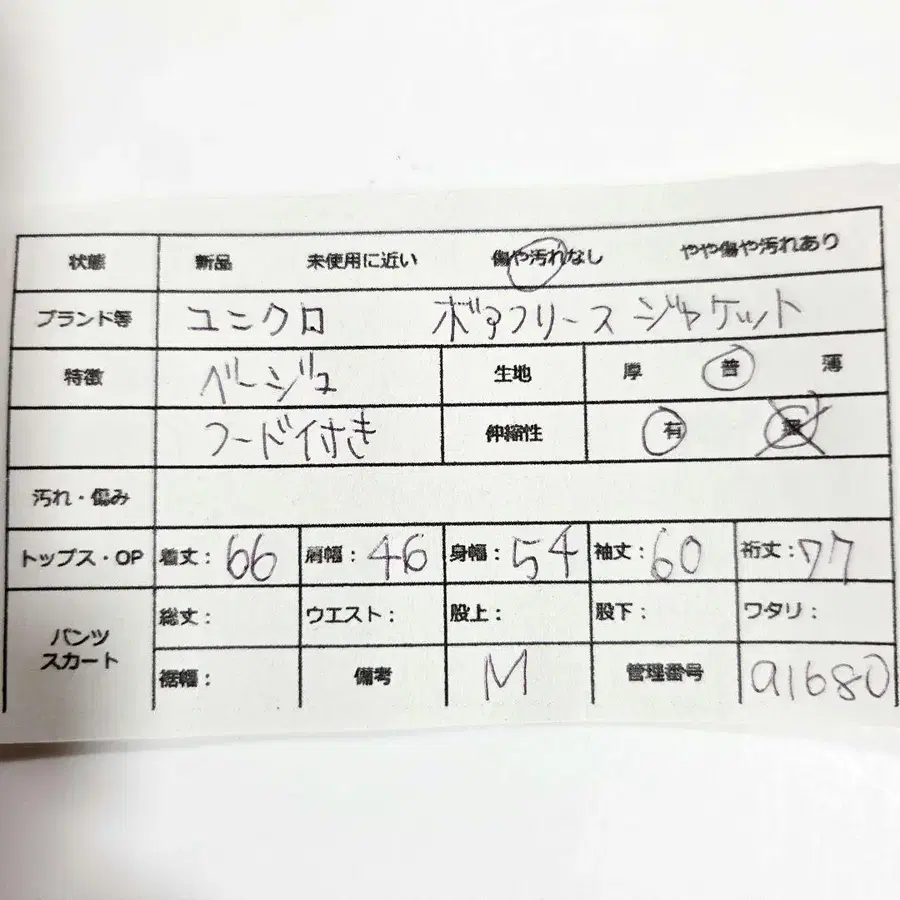 状態 新品 未使用に近い 傷や汚れなし やや傷や汚れあり
ブランド等 ユニクロ ボアフリースジャケット
特徴 ベージュ 生地 厚 普 薄
フード付き 伸縮性 有 無
汚れ・傷み
トップス・OP 着丈：66 肩幅：46 身幅：54 袖丈：60 裄丈：77
パンツ スカート 総丈： ウエスト： 股上： 股下： ワタリ：
裾幅： 備考 M 管理番号 a1680